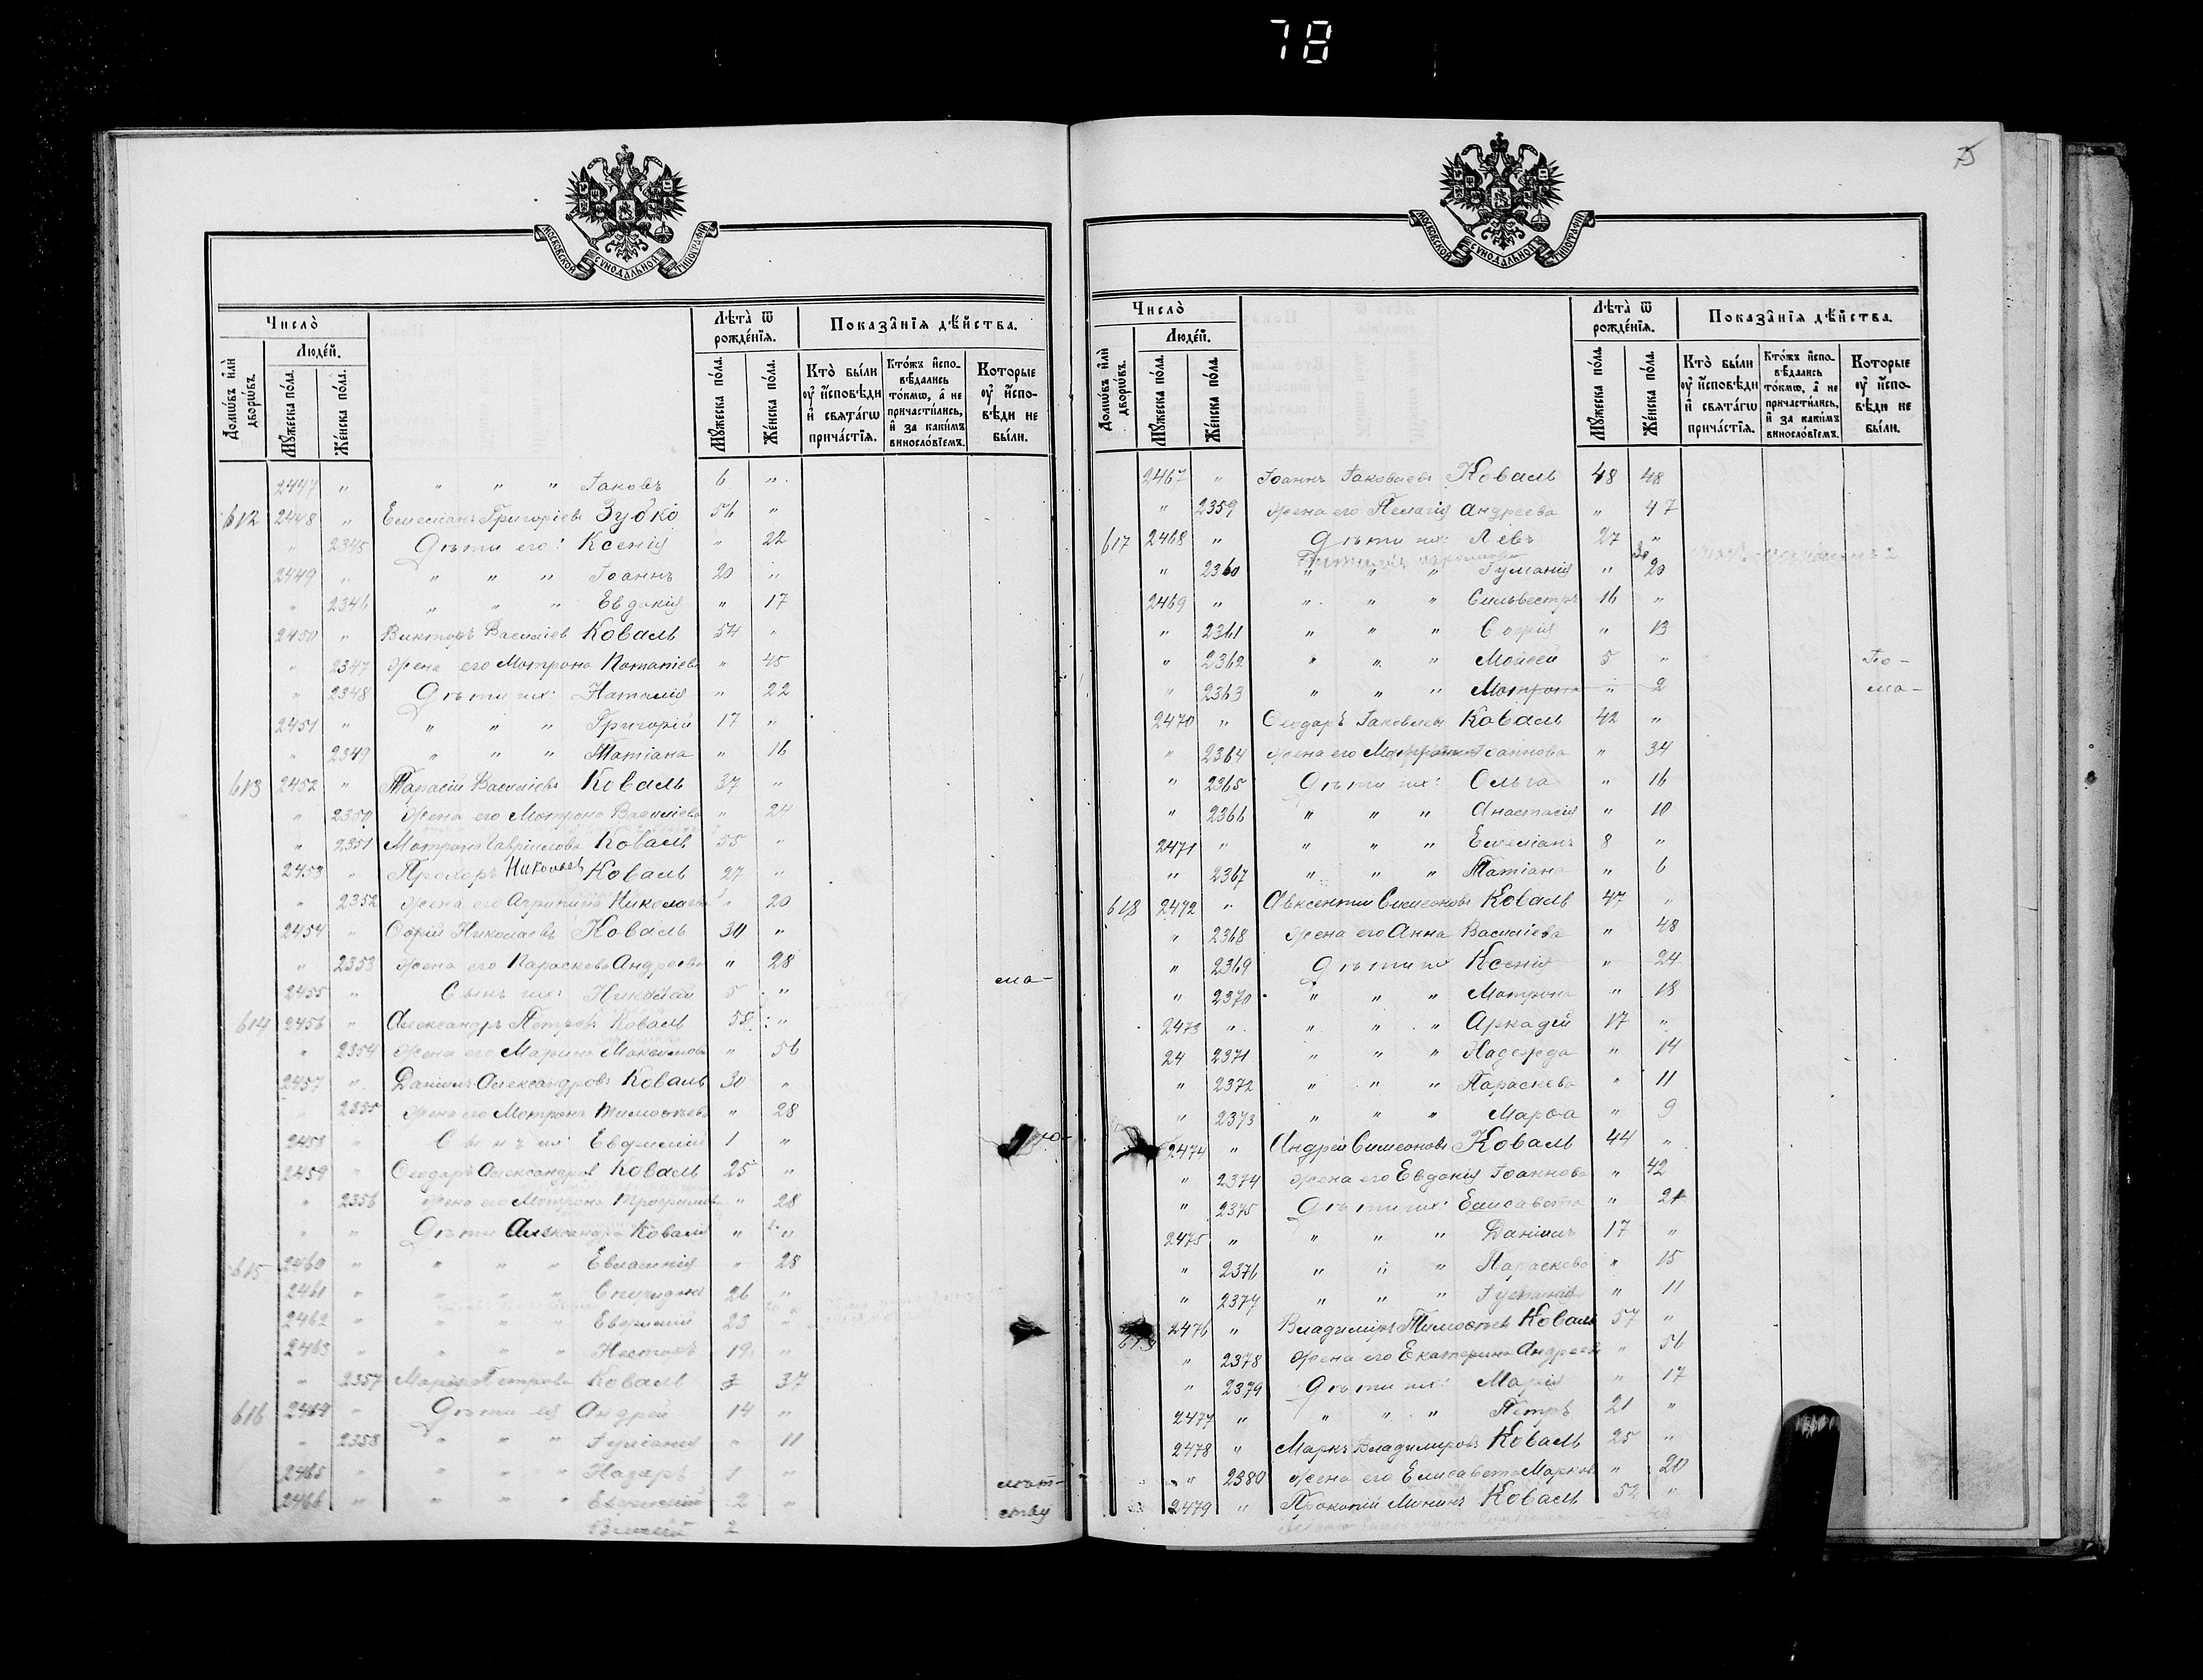 78
75
МОСКОВСКОЙ СУНОДАЛЬНОЙ ТИПОГРАФІИ
Число̀
Людéй.
Домѡ́въ и҆лѝ дворѡ́въ.
Мꙋ́жеска по́ла.
Же́нска по́ла.
Лѣ́та ѿ рожде́нїѧ.
Мꙋ́жеска по́ла.
Же́нска по́ла.
Показа̑нїѧ дѣ́йства.
Кто̀ бы́ли оу҆ и҆́сповѣди и҆ свѧта́гѡ прича́стїѧ.
Кто́жъ и҆сповѣ́дались то́кмѡ, а҆ не причасти́лись, и҆ за каки́мъ винослóвїемъ.
Которые оу҆ и҆́сповѣди не бы́ли.
2447 " " " " Іаковъ 6 "
612 2448 " Емеліанъ Григоріевъ Зубко 56 "
" 2345 Дѣти его: Ксенія " 22
2449 " " " " Іоаннъ 20 "
" 2346 " " " Евдокія " 17
2450 " Викторъ Василіев Коваль 54 "
" 2347 Жена его Мотрона Потапіева " 45
" 2348 Дѣти их: Наталія " 22
2451 " " " " Григорій 17 "
" 2349 " " " Татіана " 16
613 2452 " Тарасій Василіевъ Коваль 37 "
" 2350 Жена его Мотрона Василіева " 24
" 2351 Мотрона Гавріилова Коваль 55 "
2453 " Прохоръ Николаев Коваль 27 "
" 2352 Жена его Агрипина Николаева " 20
2454 " Николаевъ Коваль 30 "
" 2353 Жена его Параскева Андреева " 28
2455 " Сынъ их: Николай 5 " ма-
614 2456 " Александръ Петровъ Коваль 58 "
" 2354 Жена его Марина Максимова " 56
2457 " Даніилъ Александровъ Коваль 30 "
" 2355 Жена его Мотрона Тимоѳеева " 28
2458 " Сынъ их: Евфимій 1 "
2459 " Ѳеодоръ Александров Коваль 25 "
" 2356 Жена его Мотрона Трофимова " 28
" " Дѣти Александра Коваля " "
615 2460 " " " " Евлампія " 28
2461 " " " " Спиридонъ 26 "
2462 " " " " Евфимій 23
2463 " " " " Несторъ 19 "
" 2357 Петрова Коваль 37
616 2464 " Дѣти ея Андрей 14 "
" 2358 " " " Іуліанія " 11
2465 " " " " Назаръ 1 "
2466 " " " " 2 "
ству
2
Число̀
Людéй.
Домѡ́въ и҆лѝ дворѡ́въ.
Мꙋ́жеска по́ла.
Же́нска по́ла.
Лѣ́та ѿ рожде́нїѧ.
Мꙋ́жеска по́ла.
Же́нска по́ла.
Показа̑нїѧ дѣ́йства.
Кто̀ бы́ли оу҆ и҆́сповѣди и҆ свѧта́гѡ прича́стїѧ.
Кто́жъ и҆сповѣ́дались то́кмѡ, а҆ не причасти́лись, и҆ за каки́мъ винослóвїемъ.
Которые оу҆ и҆́сповѣди не бы́ли.
МОСКОВСКОЙ СУНОДАЛЬНОЙ ТИПОГРАФІИ
2467 " Іоаннъ Іаковлевъ Коваль 48 48
" 2359 Жена его Пелагія Андреева " 47
617 2468 " Дѣти их: Левъ 27 "
" 2360 " " " Іуліанія " 20
2469 " " " " Сильвестръ 16 "
" 2361 " " " Софія " 13
" 2362 " " " Моисей 5 " По-
" 2363 " " " Мотрона " 2 ма-
2470 " Ѳеодоръ Іаковлевъ Коваль 42 "
" 2364 Жена его Іоаннова " 34
" 2365 Дѣти их: Ольга " 16
" 2366 " " " Анастасія " 10
2471 " " " " Емеліанъ 8 "
" 2367 " " " Татіана " 6
618 2472 " Авксентій Симеоновъ Коваль 47 "
" 2368 Жена его Анна Василіева " 48
" 2369 Дѣти их Ксенія " 24
" 2370 " " " Мотрона " 18
2473 " " " " Аркадій 17 "
24 2371 " " " Надежда " 14
" 2372 " " " Параскева " 11
" 2373 " " " Марѳа " 9
2474 " Андрей Симеоновъ Коваль 44 "
" 2374 Жена его Евдокія Іоаннова " 42
" 2375 Дѣти их: Елисавета " 21
2475 " " " " Даніилъ 17 "
" 2376 " " " Параскева " 15
" 2377 " " " 11
619 2476 " Владиміръ Тимоѳеевъ Коваль 57 "
" 2378 Жена его Екатерина Андреева " 56
" 2379 Дѣти их: Марія " 17
2477 " " " " Петръ 21 "
2478 " Маркъ Владиміровъ Коваль 25 "
" 2380 Жена его Елисавета Маркова " 20
2479 " Прокопій Мининъ Коваль 52 "